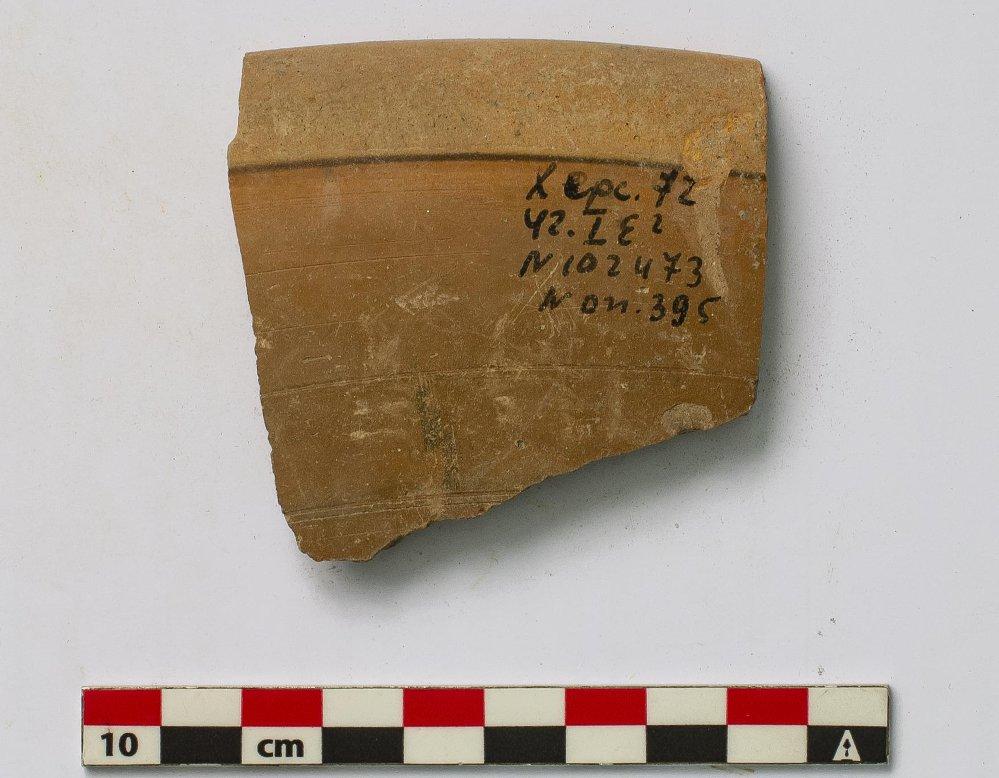 Херс. 72
уч. I Е²
N 102473
N оп. 395
10 cm
A